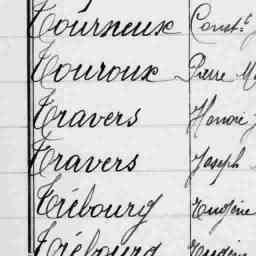 Tourneux Const.t
Touroux Pierre M
Travers Honoré J
Travers Joseph
Trébourg Eugène
Trébourg Eugène